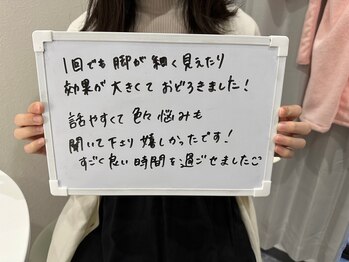 1回でも脚が細く見えたり
効果が大きくておどろきました!
話やすくて色々悩みも
聞いて下さり嬉しかったです!
すごく良い時間を過ごせました